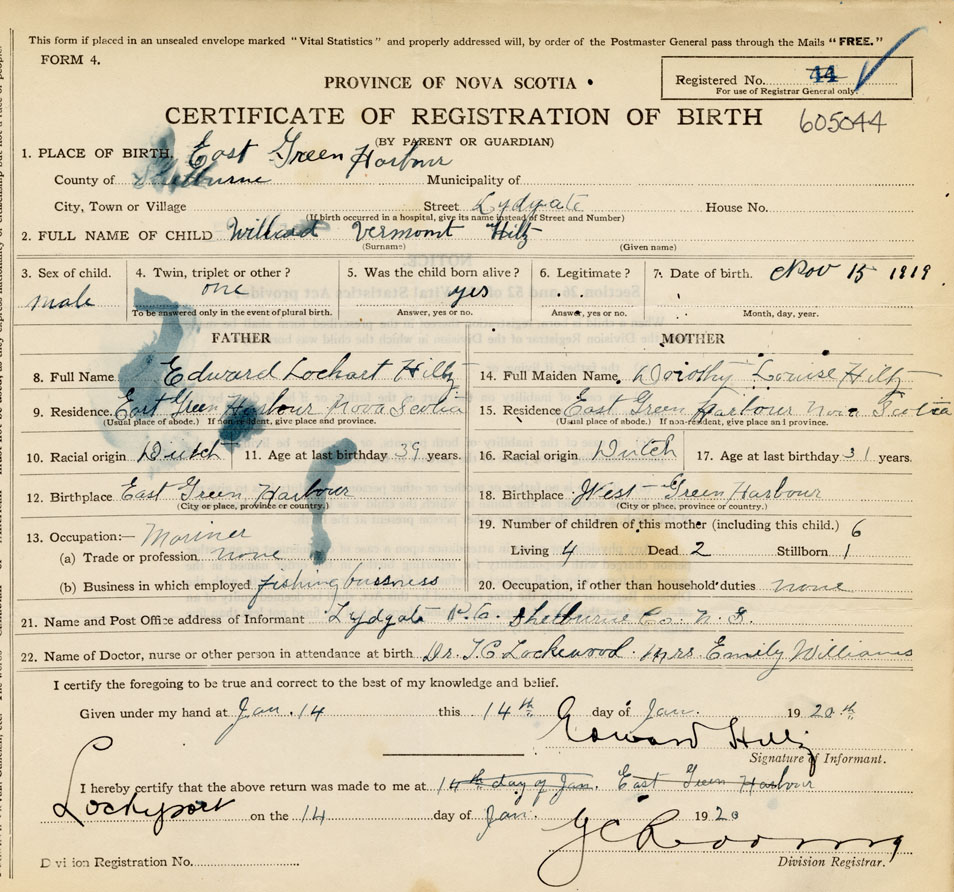 This form if placed in an unsealed envelope marked "Vital Statistics" and properly addressed will, by order of the Postmaster General pass through the Mails "FREE."
FORM 4.
Registered No. 44
For use of Registrar General only.
PROVINCE OF NOVA SCOTIA
CERTIFICATE OF REGISTRATION OF BIRTH 605044
(BY PARENT OR GUARDIAN)
1. PLACE OF BIRTH, East Green Harbour
County of Shelburne Municipality of
City, Town or Village Street Lydgate House No.
(If birth occurred in a hospital, give its name instead of Street and Number)
2. FULL NAME OF CHILD Vermont Hiltz
(Surname) (Given name)
3. Sex of child. 4. Twin, triplet or other? 5. Was the child born alive? 6. Legitimate? 7. Date of birth. Nov 15 1919
male one yes
To be answered only in the event of plural birth. Answer, yes or no. Answer, yes or no. Month, day, year.
FATHER MOTHER
8. Full Name Edward Lochart Hiltz 14. Full Maiden Name Dorothy Louise Hiltz
9. Residence. East Green Harbour Nova Scotia 15. Residence East Green Harbour Nova Scotia
(Usual place of abode.) If non-resident, give place and province. (Usual place of abode.) If non-resident, give place and province.
10. Racial origin Dutch 11. Age at last birthday 39 years. 16. Racial origin Dutch 17. Age at last birthday 31 years.
12. Birthplace East Green Harbour 18. Birthplace West Green Harbour
(City or place, province or country.) (City or place, province or country.)
13. Occupation:— Mariner 19. Number of children of this mother (including this child.) 6
(a) Trade or profession none Living 4 Dead 2 Stillborn 1
(b) Business in which employed fishing bussness 20. Occupation, if other than household duties none
21. Name and Post Office address of Informant Lydgate P.O. Shelburne Co. N.S.
22. Name of Doctor, nurse or other person in attendance at birth Dr. Lockwood. Mrs Emily Williams
I certify the foregoing to be true and correct to the best of my knowledge and belief.
Given under my hand at Jan. 14 this 14th day of Jan. 1920th
Edward Hiltz
Signature of Informant.
I hereby certify that the above return was made to me at 14th day of Jan. East Green Harbour
Lockeport on the 14 day of Jan. 1920
Division Registration No. Division Registrar.